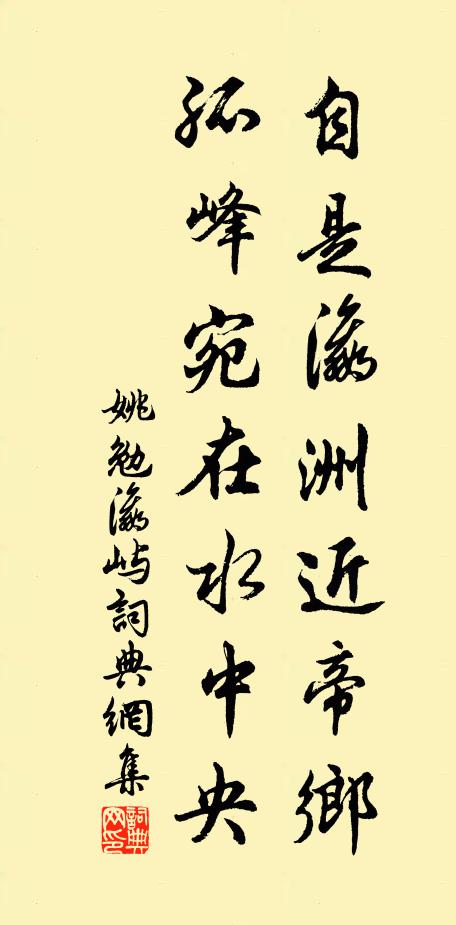 自是瀛洲近帝鄉
孤峰宛在水中央
姚勉瀛屿詞典網集
詞典网印